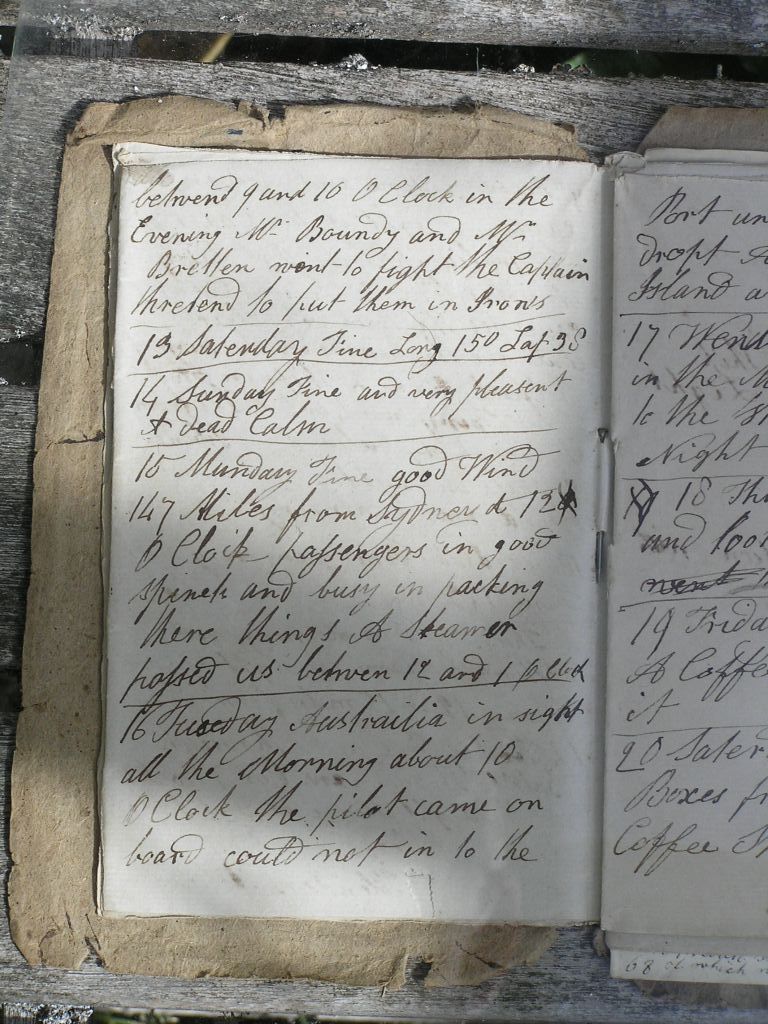 betwend 9 and 10 O Clock in the
Evening Mr Boundy and Mr
Bretten went to fight the Captain
thretend to put them in Irons
13 Saterday Fine Long 150 Lat 38
14 Sunday Fine and very pleasent
A dead Calm
15 Munday Fine good Wind
147 Miles from Sydney at 12
O Clock passengers in good
and busy in packing
there things A Steamer
passed us betwen 12 and 1 O Clock
16 Tuesday Austrailia in sight
all the Morning about 10
O Clock the pilot came on
board could not in to the
Port un
dropt A
Island a
17 Wend
in the M
to the
Night
18 Th
and loo
went
19 Frida
A Coffe
it
20 Sater
Boxes f
Coffee
68 of which